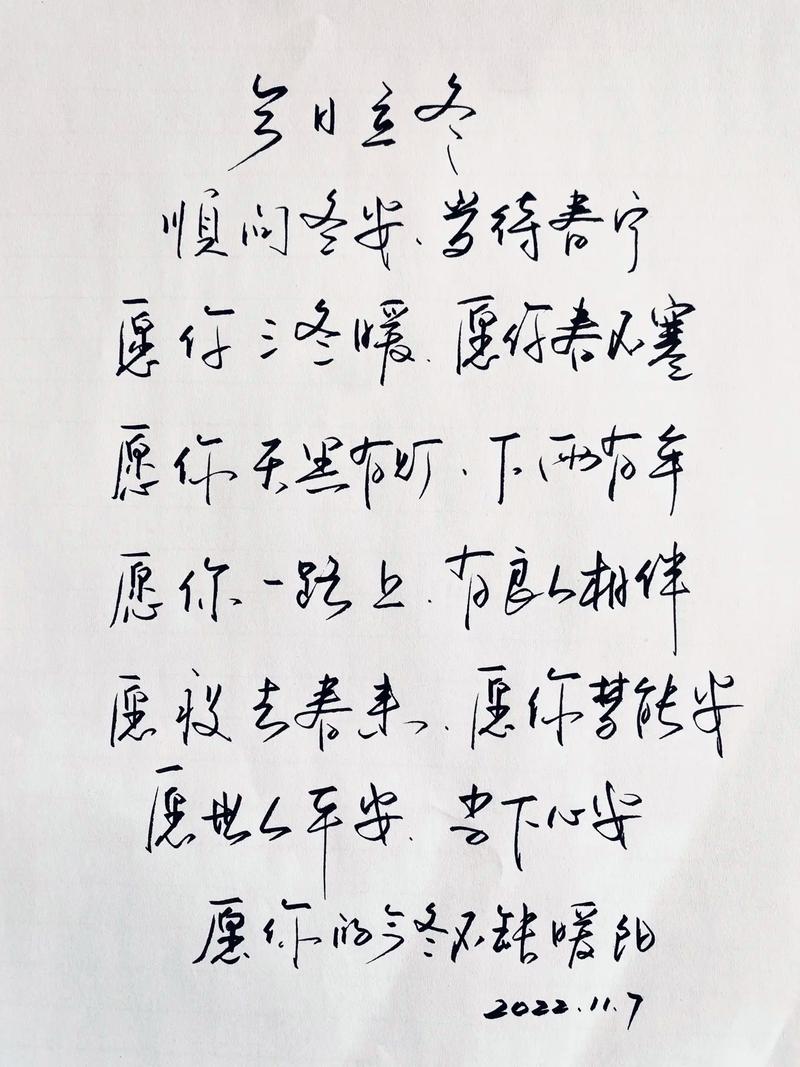 今日立冬
顺问冬安、当待春宁
愿你三冬暖、愿你春不寒
愿你天黑有灯、下雨有伞
愿你一路上、有良人相伴
愿疫去春来、愿你梦能安
愿世人平安、当下心安
愿你的今冬不缺暖阳
2022.11.7